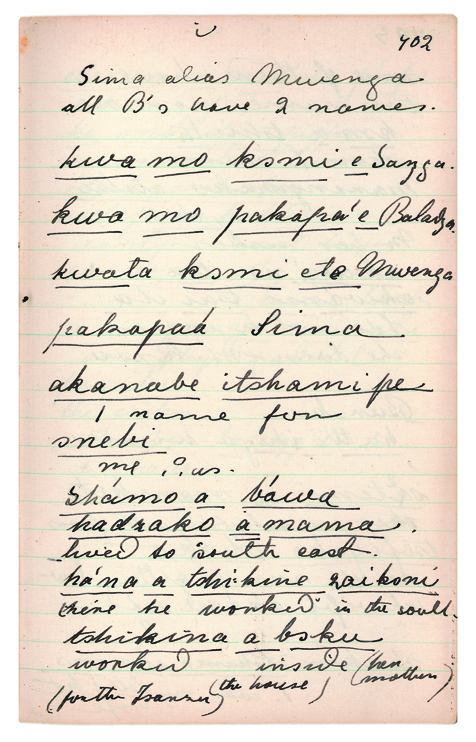 402
Sima alias Mwenga
all B's have 2 names.
kwa mo ksmi e Sanga.
kwa mo pakapá'e Baladza.
kwata ksmi eta Mwenga
pakapaá Sima
akanabe itshami pe
1 name for
snebi
me ? us.
shámo a báwa
hadzako a mama.
lived to south east.
hána a tshikine zaikoni
there he worked in the south.
tshikina a bsku
worked inside (her mother)
(for the (the house)